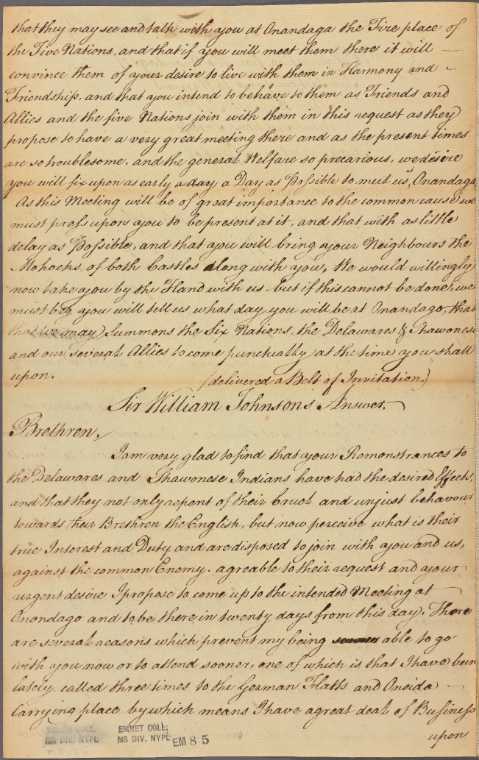 that they may see and talk with you at Onondaga the Fire place of
the Five Nations, and that if you will meet them there it will
convince them of your desire to live with them in Harmony and
Friendship, and that you intend to behave to them as Friends and
Allies and the five Nations join with them in this request as they
propose to have a very great meeting there and as the present times
are so troublesome, and the general Welfare so precarious, we desire
you will fix upon as early a Day as Possible to meet us, Onondaga
As this Meeting will be of great importance to the common cause we
must press upon you to be present at it, and that with as little
delay as Possible, and that you will bring your Neighbours the
Mohocks, of both Castles along with you, We would willingly
now take you by the Hand with us, but if this cannot be done, we
must beg you will tell us what day you will be at Onondago, that
we may Summons the Six Nations, the Delawares & Shawonese
and our several Allies to come punctually at the times you shall
upon. (delivered a Belt of Invitation.)
Sir William Johnson's Answer.
Brethren,
I am very glad to find that your Remonstrances to
the Delawares and Shawonese Indians have had the desired Effects,
and that they not only repent of their Cruel and unjust behavour
towards their Brethren the English, but now perceive what is their
true Interest and Duty and are disposed to join with you and us,
against the common Enemy. agreable to their request and your
urgent desire I propose to come up to the intended Meeting at
Onondago and to be there in twenty days from this day. There
are several reasons which prevent my being able to go
with you now or to attend sooner, one of which is that I have been
lately called three times to the German Flatts and Oneida
Carrying place by which means I have a great deal of Business
upon
EMMET COLL.
MS DIV. NYPL
EM 85